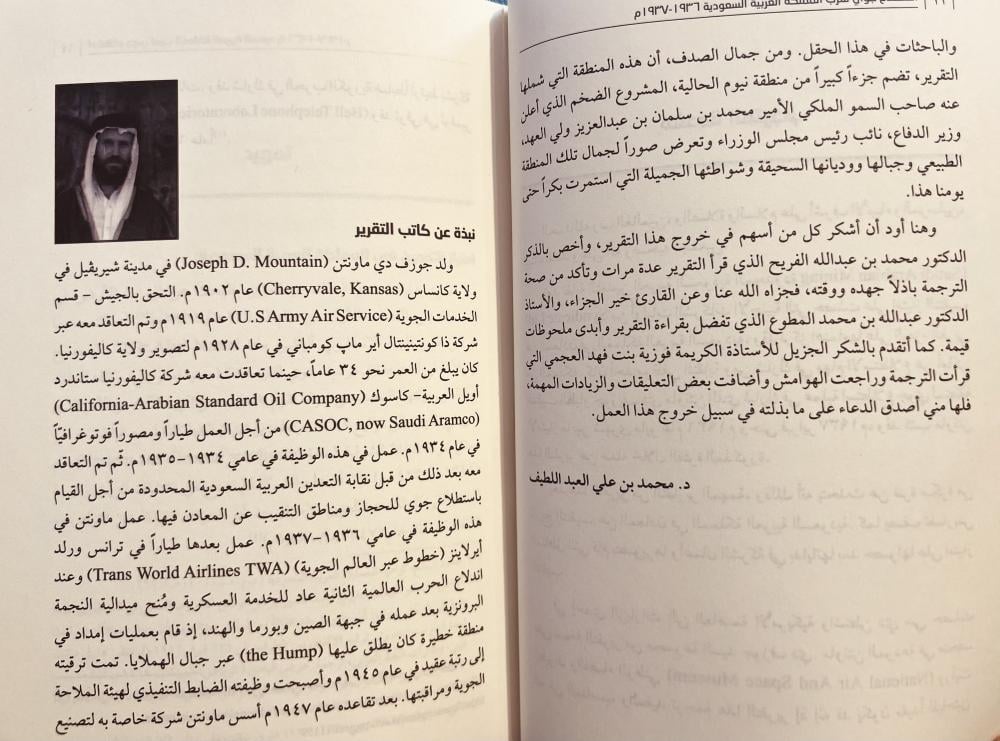 استطلاع جوي لغرب المملكة العربية السعودية ١٩٣٦-١٩٣٧م
والباحثات في هذا الحقل. ومن جمال الصدف، أن هذه المنطقة التي شملها
التقرير، تضم جزءاً كبيراً من منطقة نيوم الحالية، المشروع الضخم الذي أعلن
عنه صاحب السمو الملكي الأمير محمد بن سلمان بن عبدالعزيز ولي العهد،
وزير الدفاع، نائب رئيس مجلس الوزراء وتعرض صوراً لجمال تلك المنطقة
الطبيعي وجبالها ووديانها السحيقة وشواطئها الجميلة التي استمرت بكراً حتى
يومنا هذا.
وهنا أود أن أشكر كل من أسهم في خروج هذا التقرير، وأخص بالذكر
الدكتور محمد بن عبدالله الفريح الذي قرأ التقرير عدة مرات وتأكد من صحة
الترجمة باذلاً جهده ووقته، فجزاه الله عنا وعن القارئ خير الجزاء، والأستاذ
الدكتور عبدالله بن محمد المطوع الذي تفضل بقراءة التقرير وأبدى ملحوظات
قيمة. كما أتقدم بالشكر الجزيل للأستاذة الكريمة فوزية بنت فهد العجمي التي
قرأت الترجمة وراجعت الهوامش وأضافت بعض التعليقات والزيادات المهمة،
فلها مني أصدق الدعاء على ما بذلته في سبيل خروج هذا العمل.
د. محمد بن علي العبد اللطيف
نبذة عن كاتب التقرير
ولد جوزف دي ماونتن (Joseph D. Mountain) في مدينة شيريڤيل في
ولاية كانساس (Cherryvale, Kansas) عام ١٩٠٢م. التحق بالجيش – قسم
الخدمات الجوية (U.S Army Air Service) عام ١٩١٩م وتم التعاقد معه عبر
شركة ذا كونتينينتال أير ماپ كومباني في عام ١٩٢٨م لتصوير ولاية كاليفورنيا.
كان يبلغ من العمر نحو ٣٤ عاماً، حينما تعاقدت معه شركة كاليفورنيا ستاندرد
أويل العربية- كاسوك (California-Arabian Standard Oil Company)
(CASOC, now Saudi Aramco) من أجل العمل طياراً ومصوراً فوتوغرافيّاً
في عام ١٩٣٤م. عمل في هذه الوظيفة في عامي ١٩٣٤-١٩٣٥م. ثّم تم التعاقد
معه بعد ذلك من قبل نقابة التعدين العربية السعودية المحدودة من أجل القيام
باستطلاع جوي للحجاز ومناطق التنقيب عن المعادن فيها. عمل ماونتن في
هذه الوظيفة في عامي ١٩٣٦-١٩٣٧م. عمل بعدها طياراً في ترانس ورلد
أيرلاينز (خطوط عبر العالم الجوية) (Trans World Airlines TWA) وعند
اندلاع الحرب العالمية الثانية عاد للخدمة العسكرية ومُنح ميدالية النجمة
البرونزية بعد عمله في جبهة الصين وبورما والهند، إذ قام بعمليات إمداد في
منطقة خطيرة كان يطلق عليها (the Hump) عبر جبال الهملايا. تمت ترقيته
إلى رتبة عقيد في عام ١٩٤٥م وأصبحت وظيفته الضابط التنفيذي لهيئة الملاحة
الجوية ومراقبتها. بعد تقاعده عام ١٩٤٧م أسس ماونتن شركة خاصة به لتصنيع